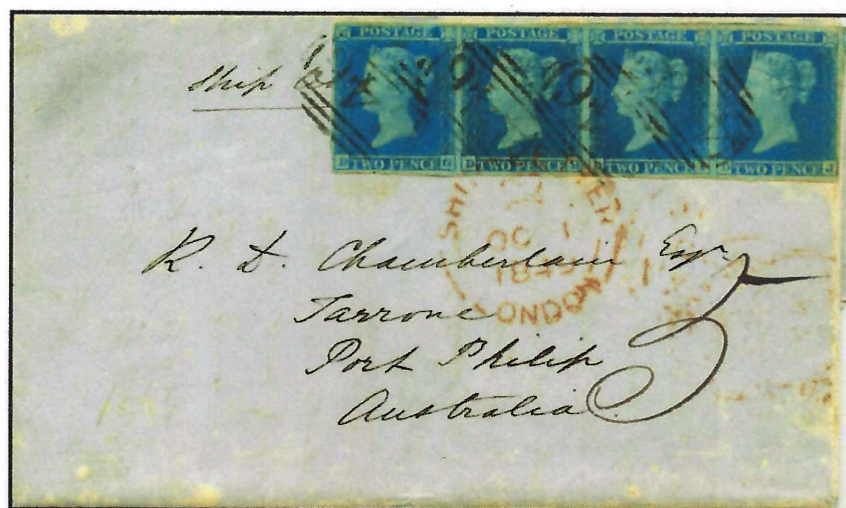 POSTAGE POSTAGE POSTAGE POSTAGE
Ship
TWO PENCE G TWO PENCE TWO PENCE TWO PENCE J
SHIP LETTER
OC 1
LONDON
R. D. Chamberlain Esqr
Tarrone
Port Philip
Australia